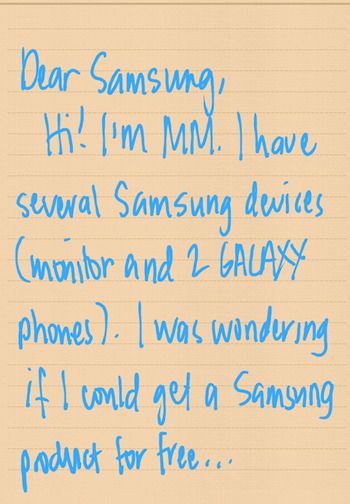 Dear Samsung,
Hi! I'm MM. I have
several Samsung devices
(monitor and 2 GALAXY
phones). I was wondering
if I could get a Samsung
product for free...